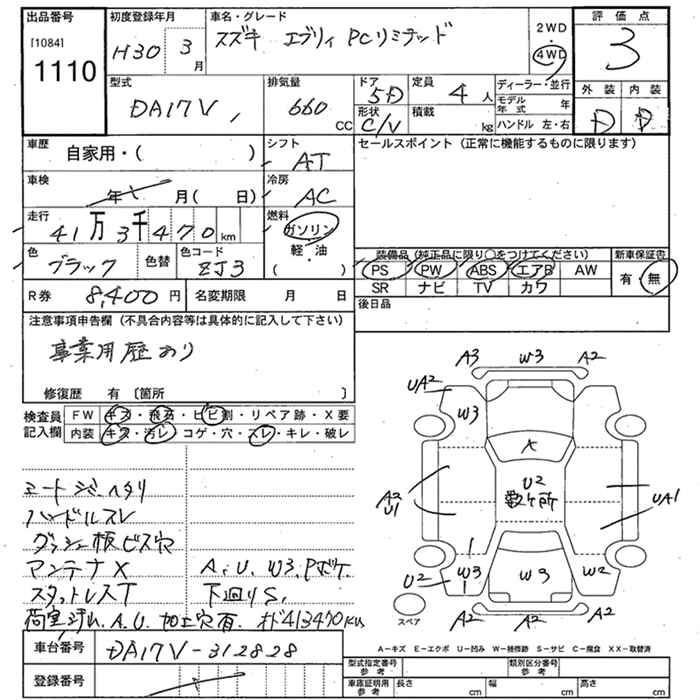 出品番号 初度登録年月 車名・グレード 2WD 評価点
[1084] H30 3月 スズキ エブリィ PCリミテッド 4WD 3
1110
型式 排気量 ドア 定員 ディーラー・並行 外装 内装
DA17V 660 CC 5D 4人 モデル年式 年
形状 C/V 積載 kg ハンドル 左・右 D D
車歴 自家用・( ) シフト AT セールスポイント (正常に機能するものに限ります)
車検 年 月( 日) 冷房 AC
走行 41万3千470km 燃料 ガソリン
色 ブラック 色替 色コード ZJ3 軽・油 ( )
装備品(純正品に限り○をつけてください) 新車保証書
PS PW ABS エアB AW 有・無
SR ナビ TV カワ
R券 8,400円 名変期限 月 日 後日品
注意事項申告欄(不具合内容等は具体的に記入して下さい)
事業用歴あり
修復歴 有〔箇所 〕
検査員記入欄 FW キズ・飛石・ヒビ割・リペア跡・X要
内装 キズ・汚レ・コゲ・穴・スレ・キレ・破レ
A3 W3 A2
UA2 W3
A
A2 U1 U2 数ヶ所 UA1
U2 W3 W3 W2
A2 A2 A2
スペア
シートジミヘタリ
ハンドルスレ
ダッシュ板ビス穴
アンテナX A、U、W3、Pボケ、
スタッドレスT 下廻りS、
荷室汚れ、A、U、加工穴有、 413470km
A−キズ E−エクボ U−凹み W−補修跡 S−サビ C−腐食 XX−取替済
車台番号 DA17V-312828
登録番号
型式指定番号 参考 類別区分番号 参考
車庫証明用 参考 長さ cm 幅 cm 高さ cm